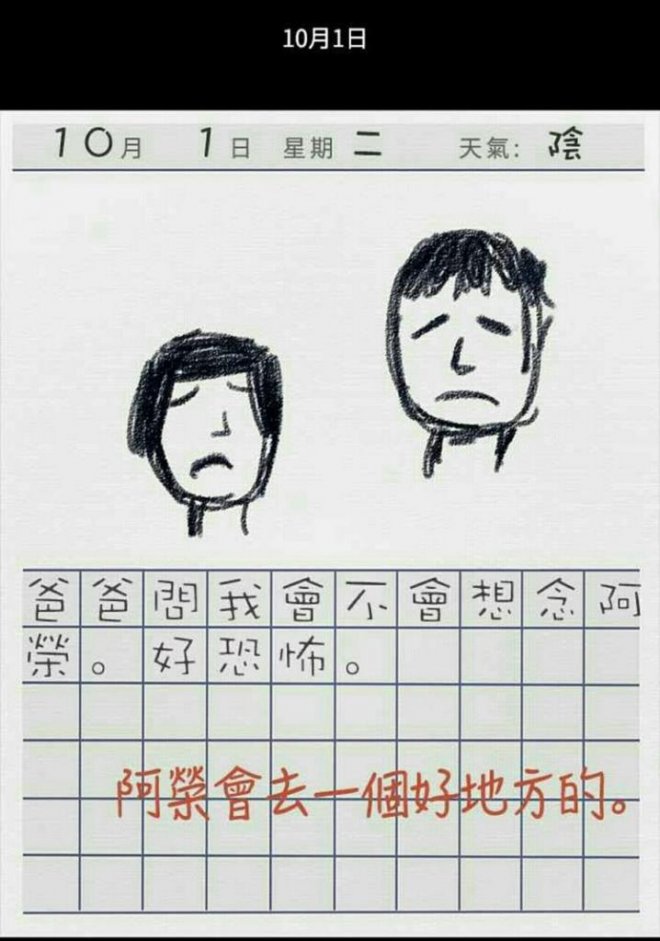 10月1日
10月 1日 星期 二 天氣: 陰
爸爸問我會不會想念阿
榮。好恐怖。
阿榮會去一個好地方的。